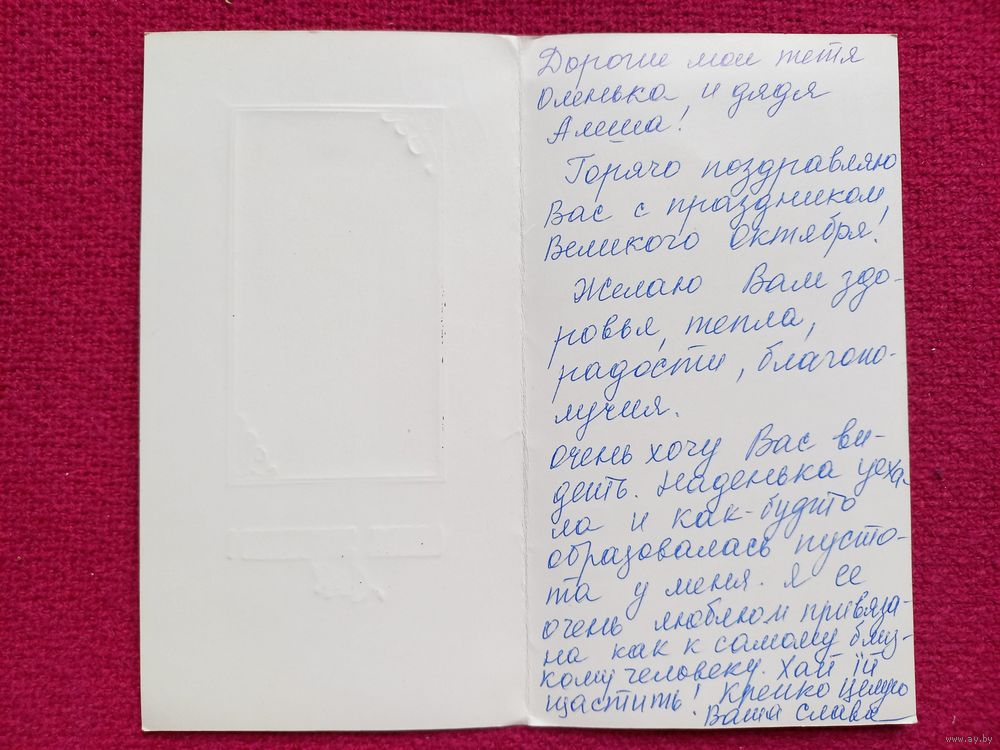 Дорогие мои тетя
Оленька и дядя
Алеша!
Горячо поздравляю
Вас с праздником
Великого Октября!
Желаю Вам здо-
ровья, тепла,
радости, благопо-
лучия.
Очень хочу Вас ви-
деть. Наденька уеха-
ла и как-будто
образовалась пусто-
та у меня. Я её
очень люблю и привяза-
на как к самому близ-
кому человеку. Хай їй
щастить! Крепко целую
Ваша Слава
www.ay.by